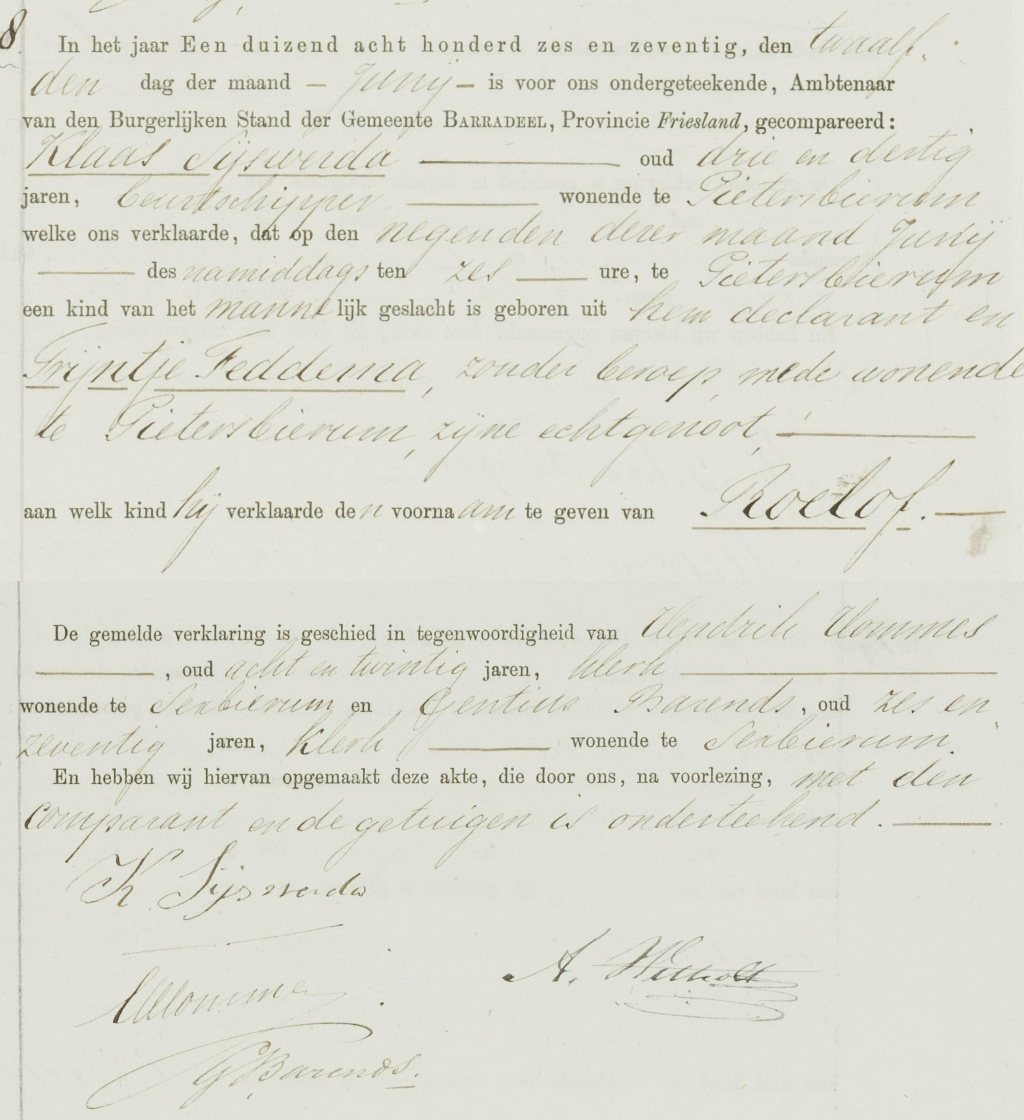 8
In het jaar Een duizend acht honderd zes en zeventig, den twaalf-
den dag der maand – Junij – is voor ons ondergeteekende, Ambtenaar
van den Burgerlijken Stand der Gemeente BARRADEEL, Provincie Friesland, gecompareerd:
Klaas Sijswerda — oud drie en dertig
jaren, beurtschipper — wonende te Pietersbierum
welke ons verklaarde, dat op den negenden dezer maand Junij
— des namiddags ten zes — ure, te Pietersbierum
een kind van het mannelijk geslacht is geboren uit hem declarant en
Trijntje Feddema, zonder beroep, mede wonende
te Pietersbierum, zijne echtgenoot, —
aan welk kind hij verklaarde den voornaam te geven van Roelof. —
De gemelde verklaring is geschied in tegenwoordigheid van Hendrik
—, oud acht en twintig jaren, klerk —
wonende te Sexbierum en Gentius Barends, oud zes en
zeventig jaren, klerk — wonende te Sexbierum.
En hebben wij hiervan opgemaakt deze akte, die door ons, na voorlezing, met den
comparant en de getuigen is onderteekend. —
K Sijswerda
A.
G Barends.